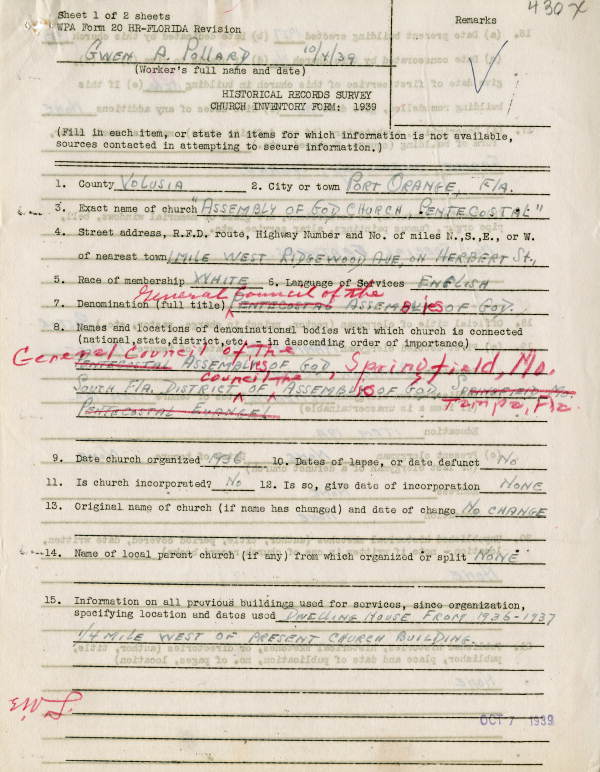 430X
Sheet 1 of 2 sheets
Remarks
WPA Form 20 HR-FLORIDA Revision
GWEN A. POLLARD 10/4/39
(Worker's full name and date)
HISTORICAL RECORDS SURVEY
CHURCH INVENTORY FORM: 1939
(Fill in each item, or state in items for which information is not available,
sources contacted in attempting to secure information.)
1. County VOLUSIA 2. City or town PORT ORANGE, FLA.
3. Exact name of church "ASSEMBLY OF GOD CHURCH, PENTECOSTAL"
4. Street address, R.F.D. route, Highway Number and No. of miles N.,S.,E., or W.
of nearest town 1 MILE WEST RIDGEWOOD AVE, ON HERBERT St.,
5. Race of membership WHITE 6. Language of Services ENGLISH
General Council of the
7. Denomination (full title) PENTECOSTAL ASSEMBLIES OF GOD.
8. Names and locations of denominational bodies with which church is connected
(national,state,district,etc. - in descending order of importance)
General Council of The
PENTECOSTAL ASSEMBLIES OF GOD, Springfield, Mo.
Council the
SOUTH FLA. DISTRICT OF ASSEMBLIES OF GOD, SPRINGFIELD MO.
PENTECOSTAL EVANGEL Tampa, Fla.
9. Date church organized 1936 10. Dates of lapse, or date defunct NO
11. Is church incorporated? NO 12. Is so, give date of incorporation NONE
13. Original name of church (if name has changed) and date of change NO CHANGE
14. Name of local parent church (if any) from which organized or split NONE
15. Information on all previous buildings used for services, since organization,
specifying location and dates used DWELLING HOUSE FROM 1936-1937
1/4 MILE WEST OF PRESENT CHURCH BUILDING.
OCT 7 1939